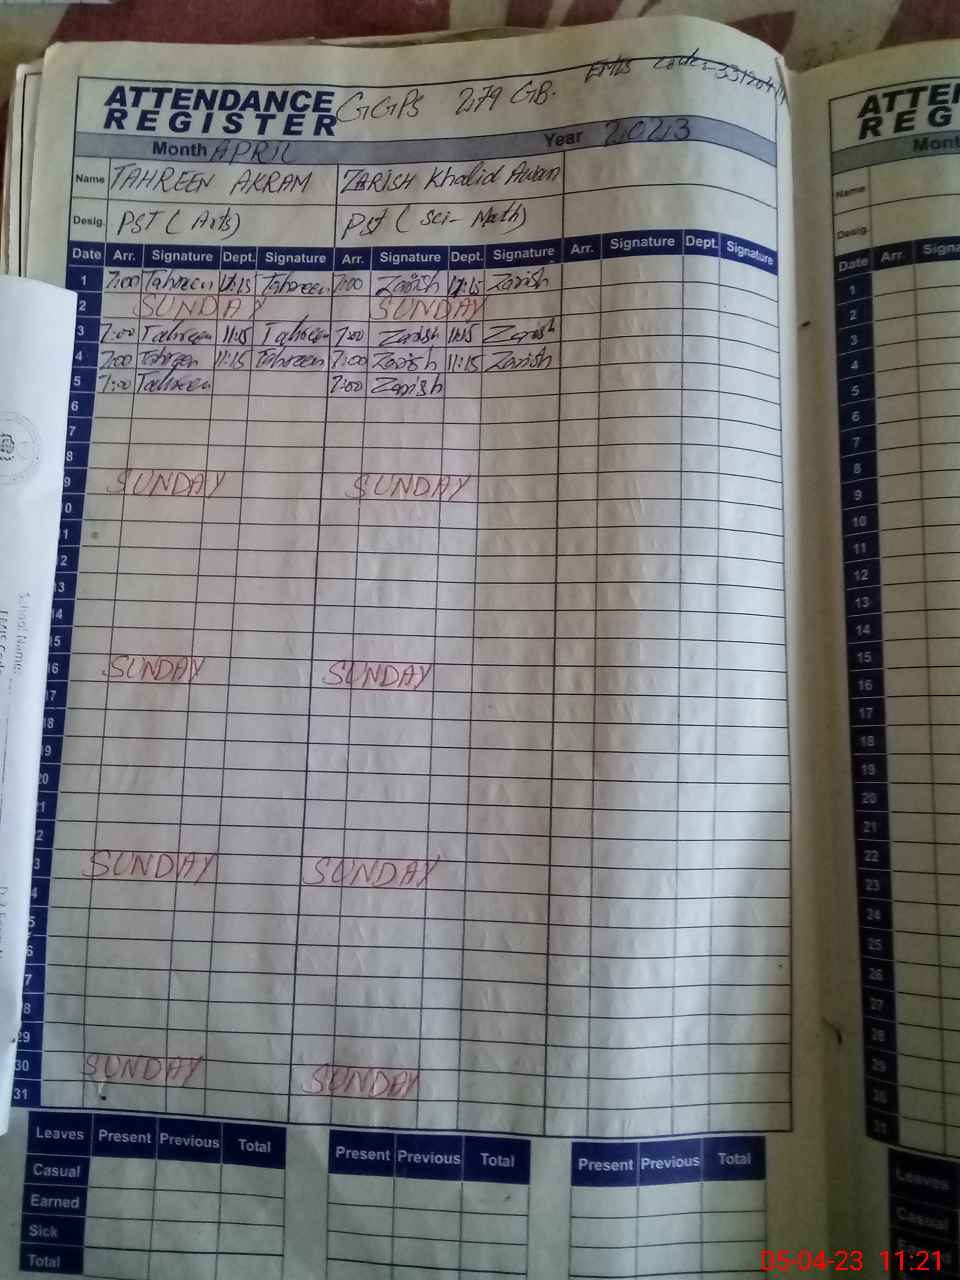 ATTENDANCE REGISTER GGPS 279 GB.
Month APRIL Year 2023
Name TAHREEN AKRAM ZARISH Khalid Awan
Desig. PST (Arts) PST (Sci- Math)
Date Arr. Signature Dept. Signature Arr. Signature Dept. Signature Arr. Signature Dept. Signature
1 7:00 Tahreen 11:15 Tahreen 7:00 Zarish 11:15 Zarish
2 SUNDAY SUNDAY
3 7:00 Tahreen 11:15 Tahreen 7:00 Zarish 11:15 Zarish
4 7:00 Tahreen 11:15 Tahreen 7:00 Zarish 11:15 Zarish
5 7:00 Tahreen 7:00 Zarish
6
7
8
9 SUNDAY SUNDAY
10
11
12
13
14
15
16 SUNDAY SUNDAY
17
18
19
20
21
2
3 SUNDAY SUNDAY
4
5
6
7
8
29
30 SUNDAY SUNDAY
31
Leaves Present Previous Total Present Previous Total Present Previous Total
Casual
Earned
Sick
Total
ATTE
REG
Mont
Name
Desig.
Date Arr. Signa
1
2
3
4
5
6
7
8
9
10
11
12
13
14
15
16
17
18
19
20
21
22
23
24
25
26
27
28
29
30
31
Leaves
Casual
School Name:
05-04-23 11:21